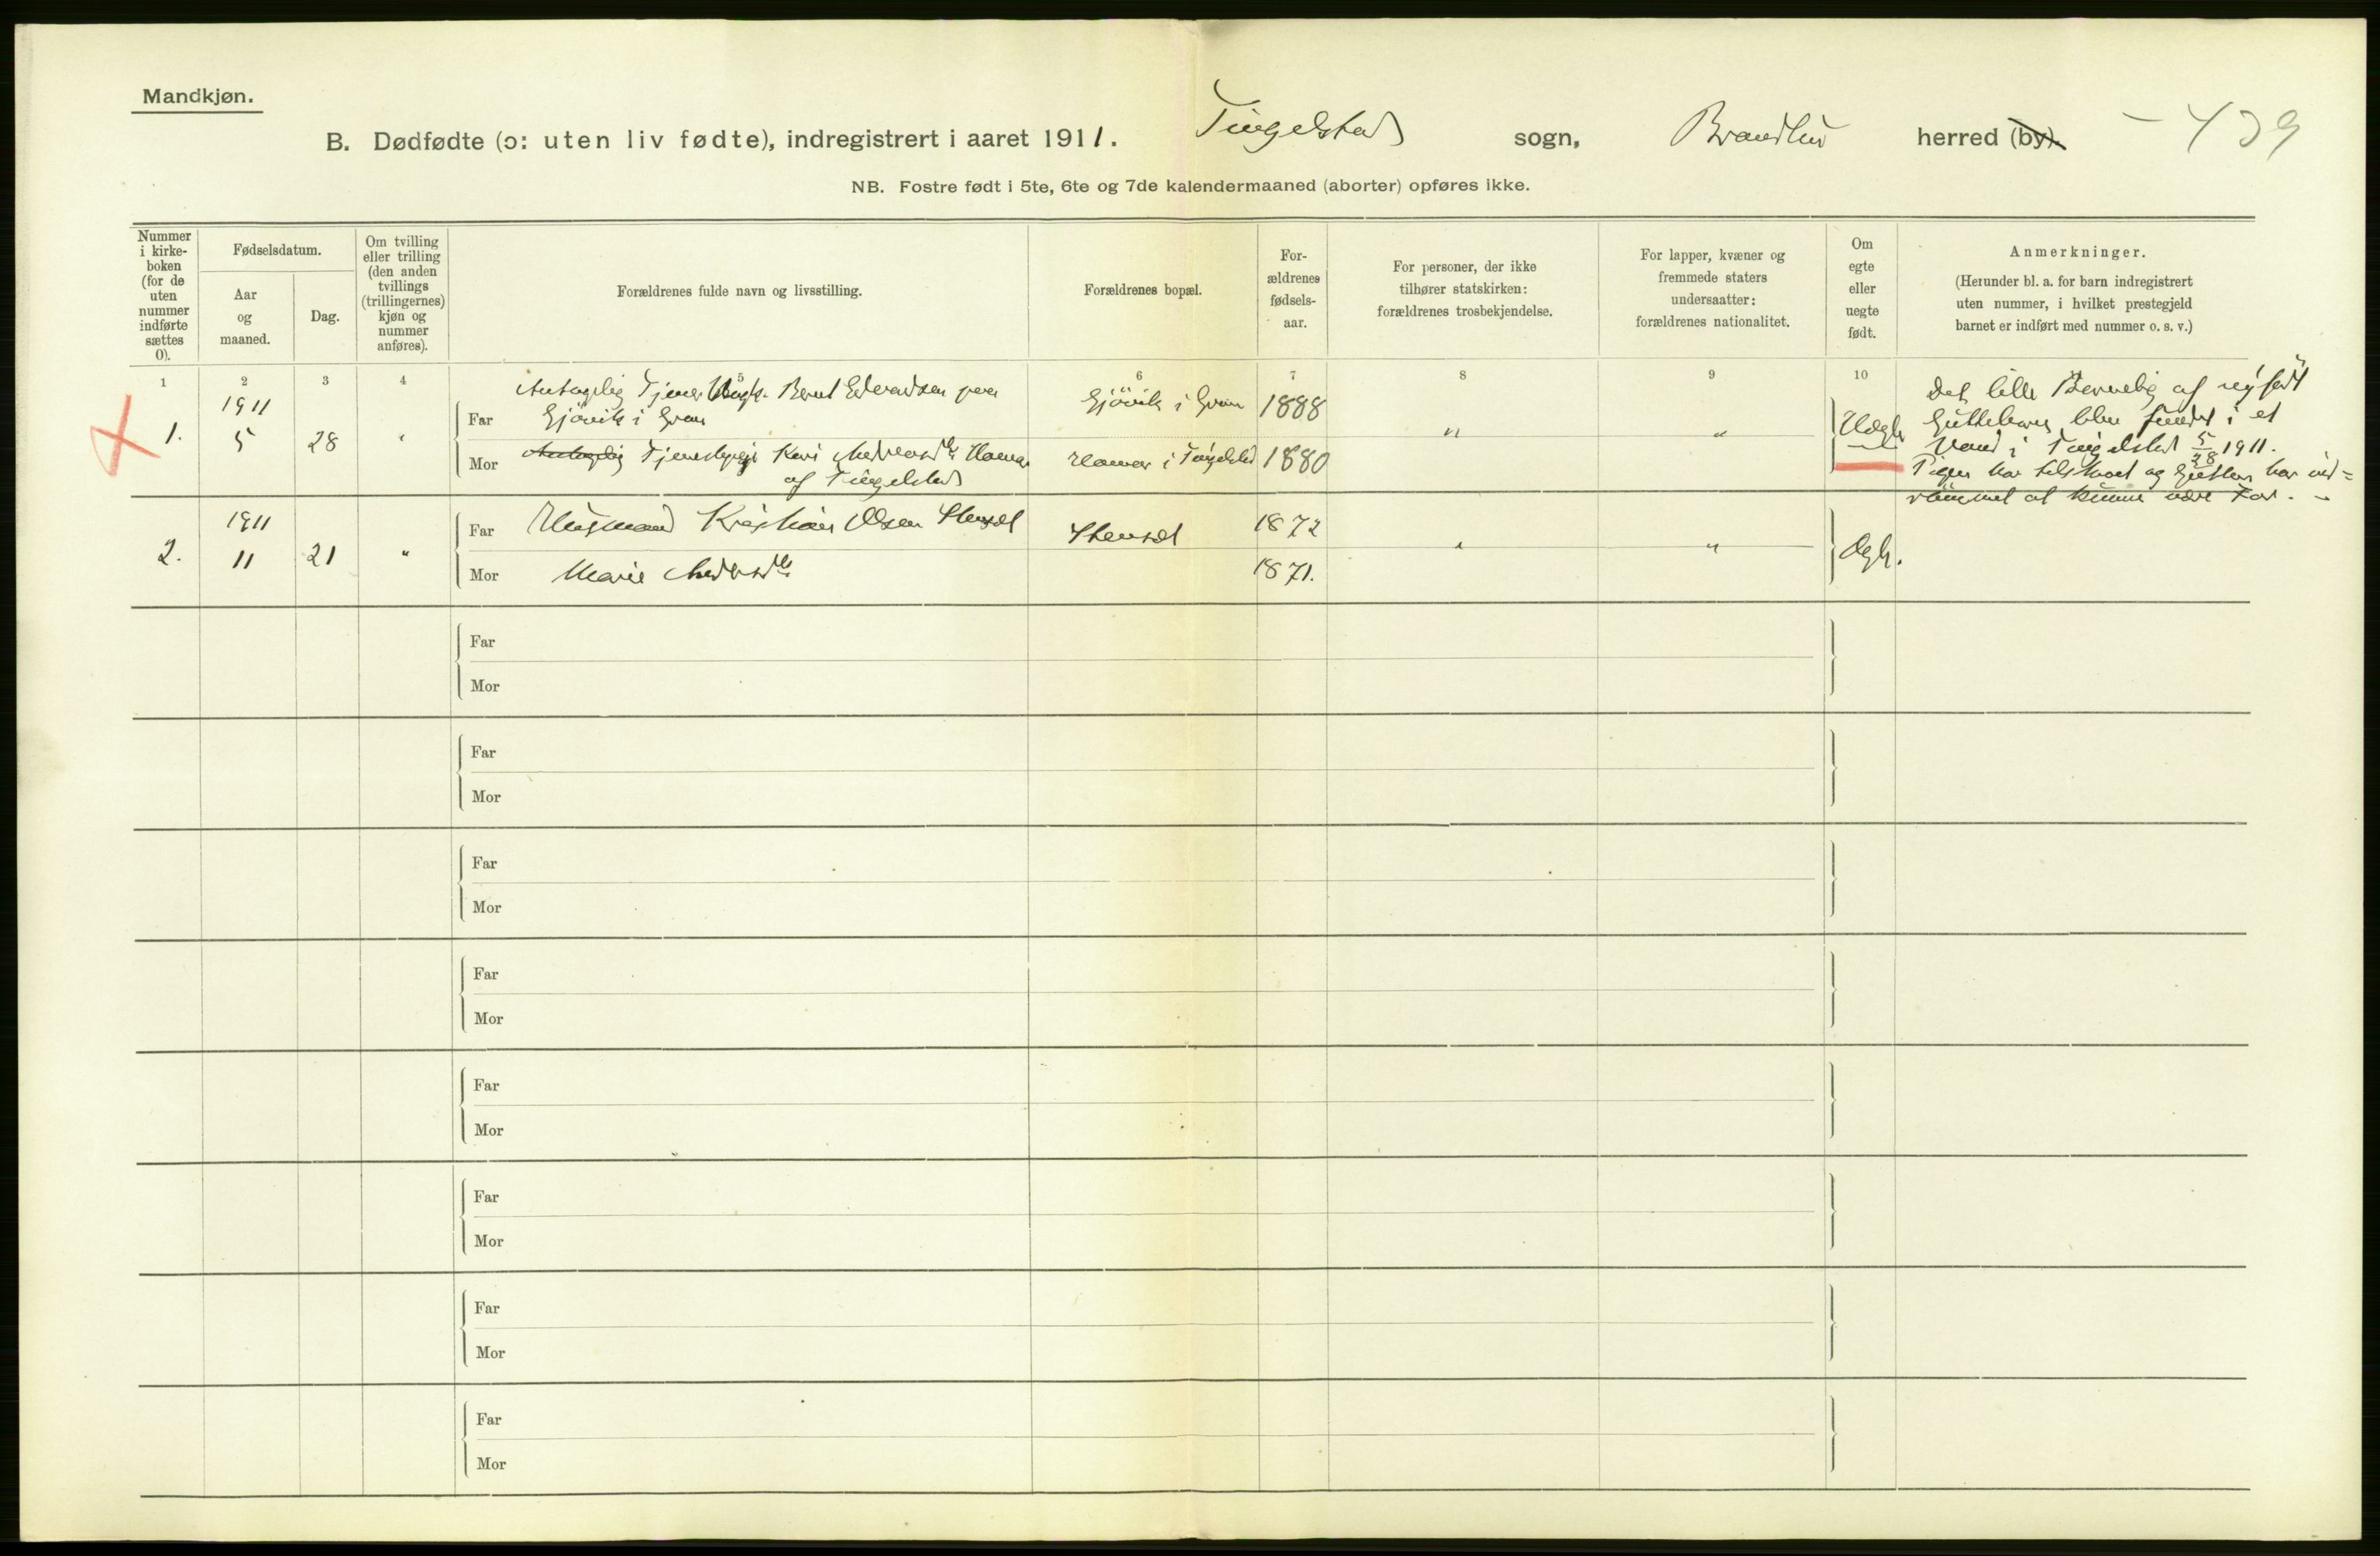 Mandkjøn.
B. Dødfødte (ɔ: uten liv fødte), indregistrert i aaret 1911. Tingelstad sogn, Brandbu herred (by). – 439
NB. Fostre født i 5te, 6te og 7de kalendermaaned (aborter) opføres ikke.
Nummer i kirke-boken (for de uten nummer indførte sættes 0).
Fødselsdatum.
Aar og maaned.
Dag.
Om tvilling eller trilling (den anden tvillings (trillingernes) kjøn og nummer anføres).
Forældrenes fulde navn og livsstilling.
Forældrenes bopæl.
For-ældrenes fødsels-aar.
For personer, der ikke tilhører statskirken: forældrenes trosbekjendelse.
For lapper, kvæner og fremmede staters undersaatter: forældrenes nationalitet.
Om egte eller uegte født.
Anmerkninger.
(Herunder bl. a. for barn indregistrert uten nummer, i hvilket prestegjeld barnet er indført med nummer o. s. v.)
1 2 3 4 5 6 7 8 9 10
1. 1911 5 28 "
Far Antagelig Tjener Ungk. Bernt Edvardsen paa
Gjövik i Gran Gjövik i Gran 1888
Mor Antagelig Tjenestepige Kari Andersd. Hower
af Tingelstad Hower i Tingelstad 1880
" " Uægte
Det lille Barnelig af nyfödt
Guttebarn blev fundet i et
Vand i Tingelstad 5/28 1911.
Pigen har tilstaaet og Gutten har ind=
rømmet at kunne være Far. –
2. 1911 11 21 "
Far Husmand Kristian Olsen Stensæt Stensæt 1872
Mor Marie Andersd. 1871.
" " Ægte.
Far
Mor
Far
Mor
Far
Mor
Far
Mor
Far
Mor
Far
Mor
Far
Mor
Far
Mor